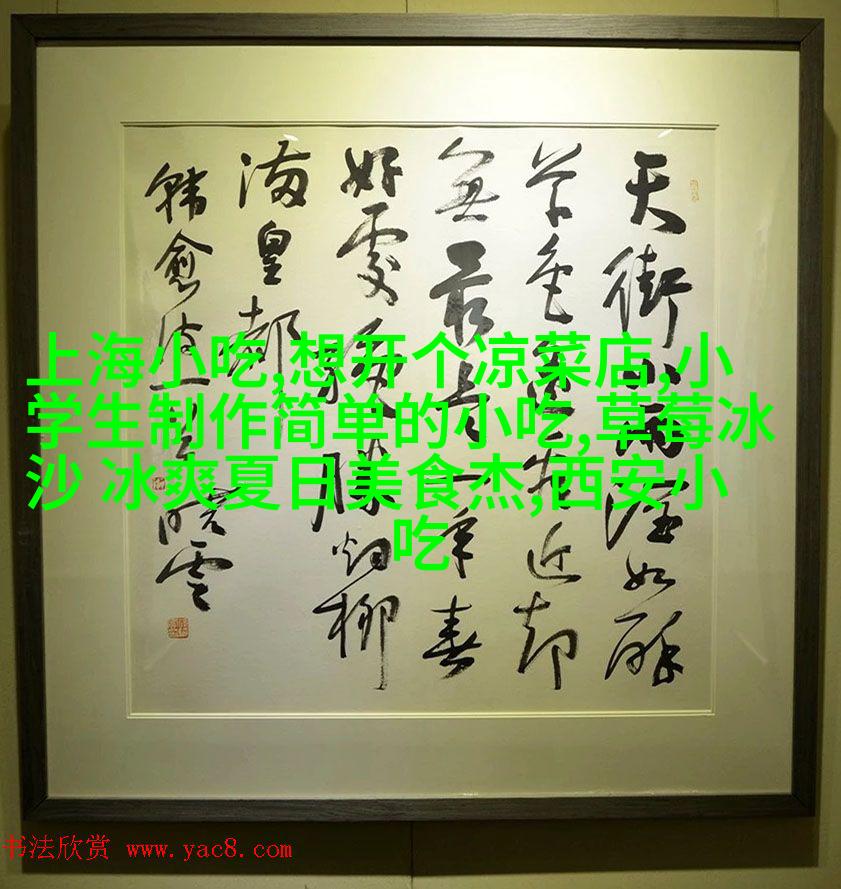 天街小雨润如酥
草色遥看近却
無最是一年春
好處絕勝烟柳
满皇都
韩愈诗一首
上海小吃,想开个凉菜店,小
学生制作简单的小吃,草莓冰
沙 冰爽夏日美食杰,西安小
吃
书法欣赏 www.yac8.com